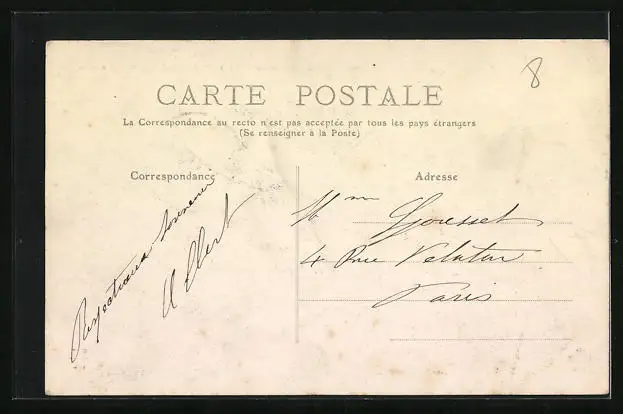 8
CARTE POSTALE
La Correspondance au recto n'est pas acceptée par tous les pays étrangers
(Se renseigner à la Poste)
Correspondance
Respectueux souvenir
Albert
Adresse
Mme Gousset
4 Rue Velatur
Paris